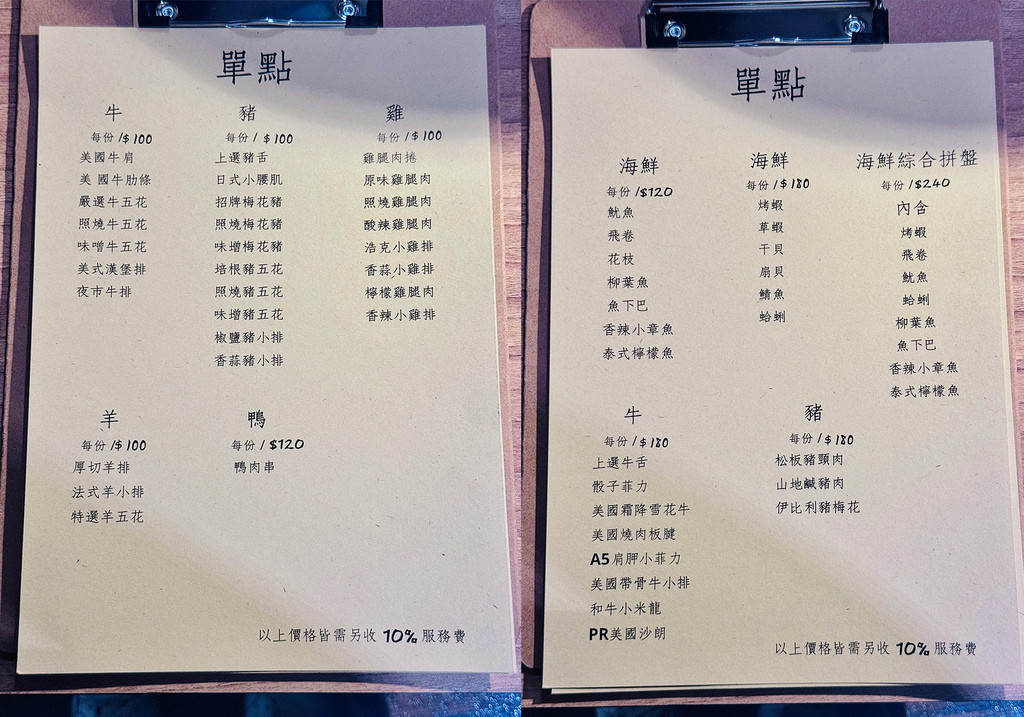 單點
牛
每份 /$ 100
美國牛肩
美 國牛肋條
嚴選牛五花
照燒牛五花
味噌牛五花
美式漢堡排
夜市牛排
豬
每份 / $ 100
上選豬舌
日式小腰肌
招牌梅花豬
照燒梅花豬
味增梅花豬
培根豬五花
照燒豬五花
味增豬五花
椒鹽豬小排
香蒜豬小排
雞
每份 /$ 100
雞腿肉捲
原味雞腿肉
照燒雞腿肉
酸辣雞腿肉
浩克小雞排
香蒜小雞排
檸檬雞腿肉
香辣小雞排
羊
每份 /$ 100
厚切羊排
法式羊小排
特選羊五花
鴨
每份 / $120
鴨肉串
以上價格皆需另收 10% 服務費
單點
海鮮
每份 /$120
魷魚
飛卷
花枝
柳葉魚
魚下巴
香辣小章魚
泰式檸檬魚
海鮮
每份 /$ 180
烤蝦
草蝦
干貝
扇貝
鯖魚
蛤蜊
海鮮綜合拼盤
每份 /$240
內含
烤蝦
飛卷
魷魚
蛤蜊
柳葉魚
魚下巴
香辣小章魚
泰式檸檬魚
牛
每份 /$ 180
上選牛舌
骰子菲力
美國霜降雪花牛
美國燒肉板腱
A5肩胛小菲力
美國帶骨牛小排
和牛小米龍
PR美國沙朗
豬
每份 /$ 180
松板豬頸肉
山地鹹豬肉
伊比利豬梅花
以上價格皆需另收 10% 服務費